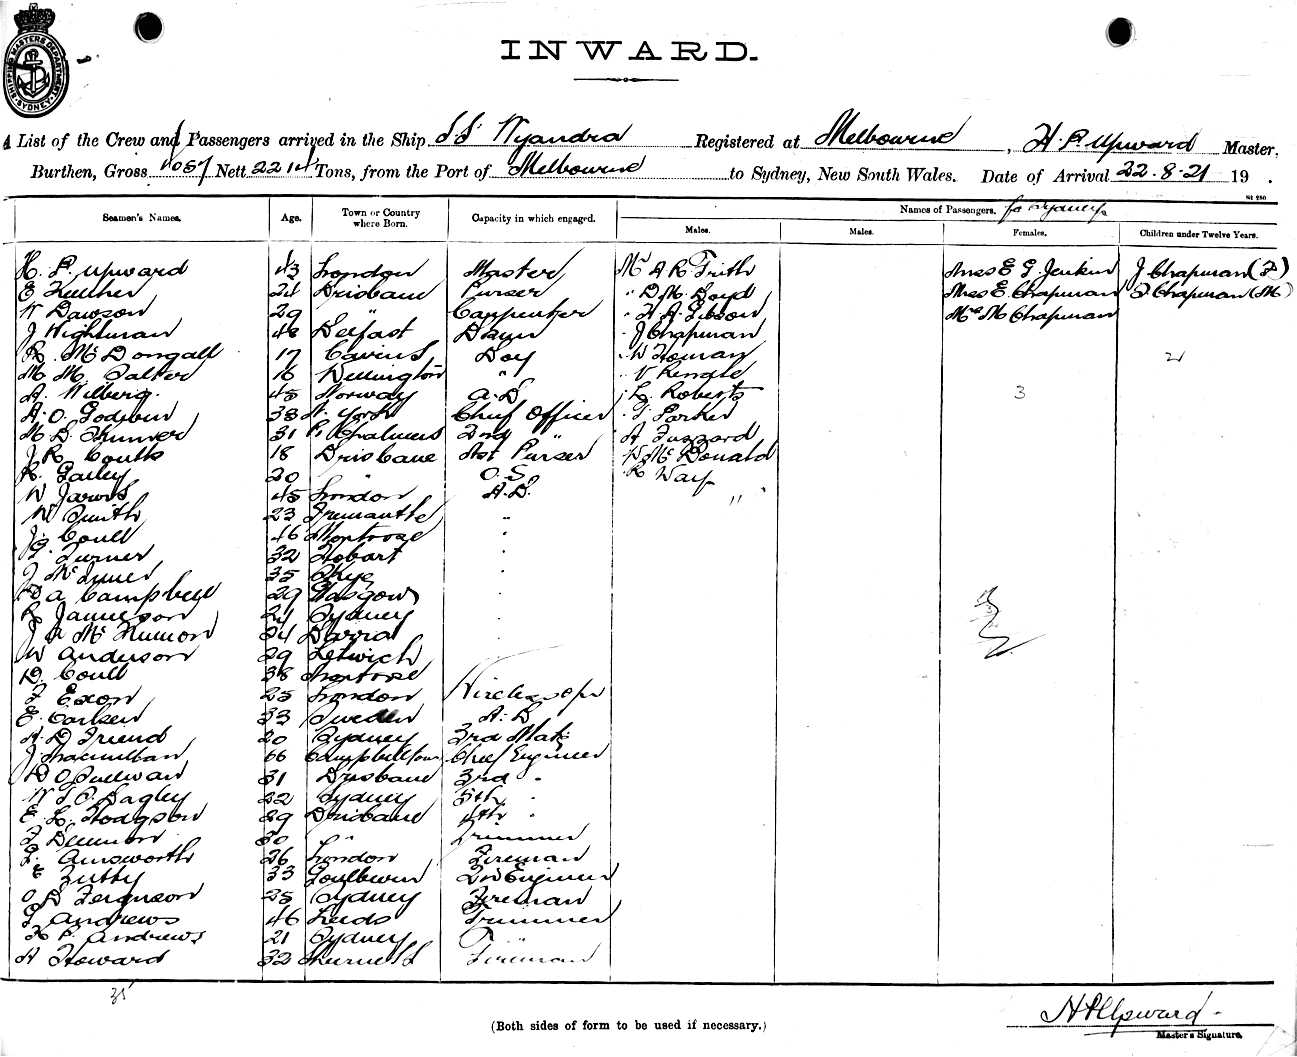 SHIPPING MASTERS DEPARTMENT SYDNEY
INWARD.
A List of the Crew and Passengers arrived in the Ship SS Wyandra Registered at Melbourne, H. P. Upward Master.
Burthen, Gross 4057 Nett 2214 Tons, from the Port of Melbourne to Sydney, New South Wales. Date of Arrival 22.8.21 19 .
St 280
Seamen's Names. Age. Town or Country where Born. Capacity in which engaged. Names of Passengers. for Sydney
Males. Males. Females. Children under Twelve Years.
H. P. Upward 43 London Master Mr A R Frith Miss E G. Jenkin J Chapman (F)
E 24 Brisbane Purser " D. M. Boyd Miss E. Chapman F Chapman (M)
W Dawson 29 " Carpenter " H A. Gibson Mrs M Chapman
J Wightman 46 Belfast " J Chapman
R. McDougall 17 Boy " W 2
M. M. 16 Wellington " " V
A. Wilberg. 45 Norway A.B " L. Roberts 3
A. O. Godwin 38 N. York Chief Officer " T Parker
M D. 31 P. Chalmers 2nd " A
J R Coutts 18 Brisbane Ast Purser W McDonald
R. Gailey 20 " O.S. " R Way
W Jarvis 45 London A.B. "
W. Smith 23 Fremantle "
J. Coull 46 Montrose "
G. Turner 32 Hobart "
J McInnes 35 Skye "
D A Campbell 29 Glasgow "
R Jamieson 24 Sydney "
J A Mc 24 Barra "
W Anderson 29
D. Coull 38 Montrose
F Exon 25 London
E. Carlsen 33 Sweden A.B
A D Friend 20 Sydney 3rd Mate
J Macmillan 66 Campbelltown Chief Engineer
D O'Sullivan 31 Brisbane 3rd "
W J O. Bagley 22 Sydney 5th "
E L Hodgson 29 Brisbane 4th "
F 30 " Trimmer
F. Ainsworth 26 London Fireman
E Tutty 33 Goulburn 2nd Engineer
O B Ferguson 25 Sydney Fireman
G Andrews 46 Leeds Trimmer
H P. Andrews 21 Sydney "
A Howard 32 Fireman
35
H P Upward
(Both sides of form to be used if necessary.)
Master's Signature.